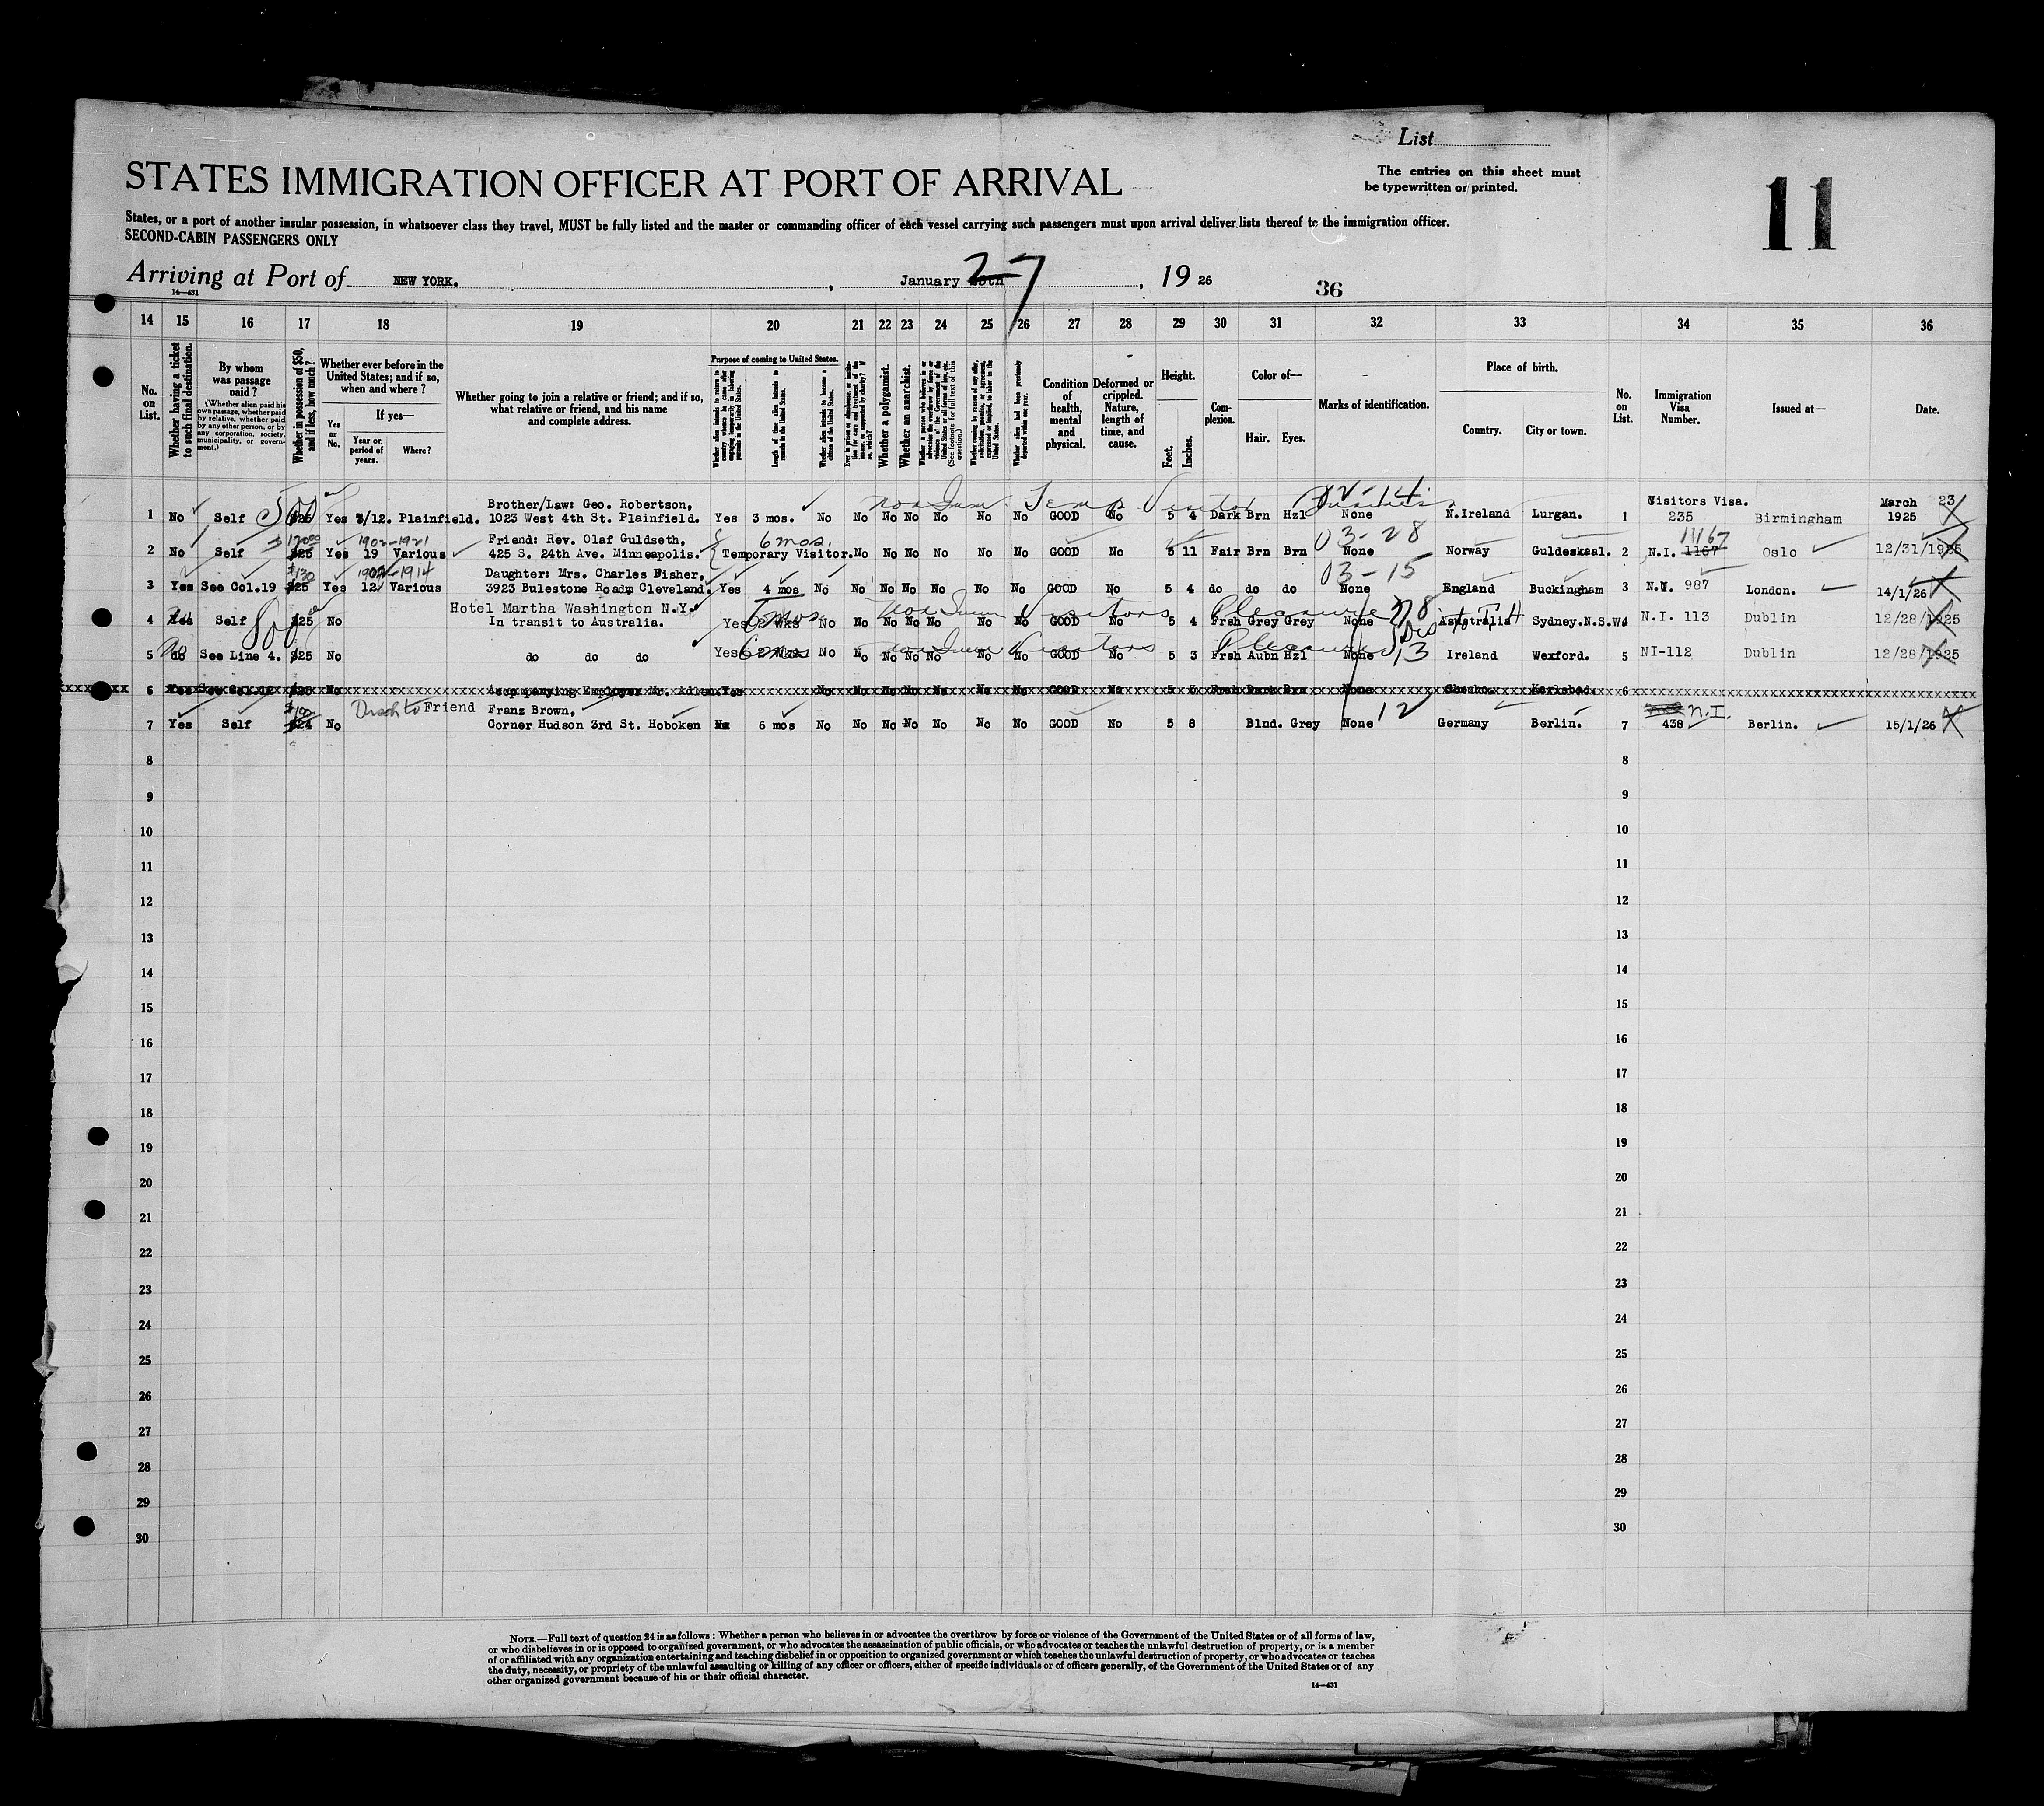 List
The entries on this sheet must
be typewritten or printed.
11
STATES IMMIGRATION OFFICER AT PORT OF ARRIVAL
States, or a port of another insular possession, in whatsoever class they travel, MUST be fully listed and the master or commanding officer of each vessel carrying such passengers must upon arrival deliver lists thereof to the immigration officer.
SECOND-CABIN PASSENGERS ONLY
Arriving at Port of NEW YORK. , January 27 , 19 26
14—431
36
14 15 16 17 18 19 20 21 22 23 24 25 26 27 28 29 30 31 32 33 34 35 36
No. on List.
Whether having a ticket to such final destination.
By whom was passage paid?
(Whether alien paid his own passage, whether paid by relative, whether paid by any other person, or by any corporation, society, municipality, or government.)
Whether in possession of $50, and if less, how much?
Whether ever before in the United States; and if so, when and where?
Yes or No.
If yes—
Year or period of years.
Where?
Whether going to join a relative or friend; and if so, what relative or friend, and his name and complete address.
Purpose of coming to United States.
Length of time alien intends to remain in the United States.
Whether alien intends to become a citizen of the United States.
Whether a polygamist.
Whether an anarchist.
Condition of health, mental and physical.
Deformed or crippled. Nature, length of time, and cause.
Height.
Feet.
Inches.
Complexion.
Color of—
Hair.
Eyes.
Marks of identification.
Place of birth.
Country.
City or town.
No. on List.
Immigration Visa Number.
Issued at—
Date.
Brother/Law: Geo. Robertson, non Imm Temp Visitor Visitors Visa. March 23
1 No Self 500 $25 Yes 3/12. Plainfield. 1023 West 4th St. Plainfield. Yes 3 mos. No No No No No No No GOOD No 5 4 Dark Brn Hzl None N.Ireland Lurgan. 1 235 Birmingham 1925
1902-1921 Friend: Rev. Olaf Guldseth, 6 mos. 03-28 11167
2 No Self $25 Yes 19 Various 425 S. 24th Ave. Minneapolis. Temporary Visitor. No No No No No No GOOD No 5 11 Fair Brn Brn None Norway Guldeskaal. 2 N.I. 1167 Oslo 12/31/1925
1902-1914 Daughter: Mrs. Charles Fisher, 03-15
3 Yes See Col.19 $25 Yes 12 Various 3923 Bulestone Road, Cleveland. Yes 4 mos No No No No No No No GOOD No 5 4 do do do None England Buckingham 3 987 London. 14/1/26
Hotel Martha Washington N.Y. non Imm Visitors Pleasure
4 Yes Self 800 $25 No In transit to Australia. Yes 2 wks No No No No No No No GOOD No 5 4 Frsh Grey Grey None Australia Sydney.N.S.W. 4 N.I. 113 Dublin 12/28/1925
5 do No See Line 4. $25 No do do do Yes 6 mos No No No No No No No GOOD No 5 3 Frsh Aubn Hzl None 13 Ireland Wexford. 5 NI-112 Dublin 12/28/1925
non Imm Visitors Pleasure
6 Yes See Col.19 $25 No Accompanying Employer Mr. Yes No No No No No No No GOOD No 5 5 Frsh Dark Brn None Karlsbad. 6
Friend Franz Brown, N.I.
7 Yes Self $24 No Corner Hudson 3rd St. Hoboken 6 mos No No No No No No No GOOD No 5 8 Blnd. Grey None 12 Germany Berlin. 7 438 Berlin. 15/1/26
8 8
9 9
10 10
11 11
12 12
13 13
14 14
15 15
16 16
17 17
18 18
19 19
20 20
21 21
22 22
23 23
24 24
25 25
26 26
27 27
28 28
29 29
30 30
NOTE.—Full text of question 24 is as follows: Whether a person who believes in or advocates the overthrow by force or violence of the Government of the United States or of all forms of law,
or who disbelieves in or is opposed to organized government, or who advocates the assassination of public officials, or who advocates or teaches the unlawful destruction of property, or is a member
of or affiliated with any organization entertaining and teaching disbelief in or opposition to organized government or which teaches the unlawful destruction of property, or who advocates or teaches
the duty, necessity, or propriety of the unlawful assaulting or killing of any officer or officers, either of specific individuals or of officers generally, of the Government of the United States or of any
other organized government because of his or their official character.
14—431